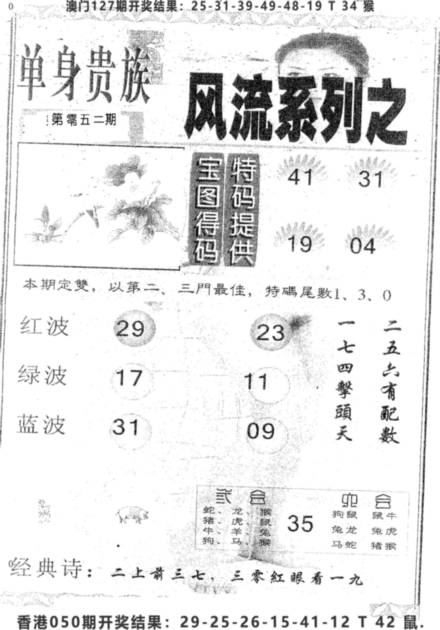 0
澳门127期开奖结果：25-31-39-49-48-19 T 34 猴
单身贵族
第零五二期
风流系列之
宝图得码
特码提供
41 31
19 04
本期定雙，以第二、三門最佳，特碼尾數1、3、0
红波 29 23
绿波 17 11
蓝波 31 09
二五六有配數
一七四擊頭天
蛇、龙、猴
猪、虎、鼠
牛、羊、兔
狗、马、猴
35
六合
狗鼠 鼠牛
兔龙 兔虎
马蛇 猪猴
经典诗：二上前三七，三零紅眼看一九
香港050期开奖结果：29-25-26-15-41-12 T 42 鼠.